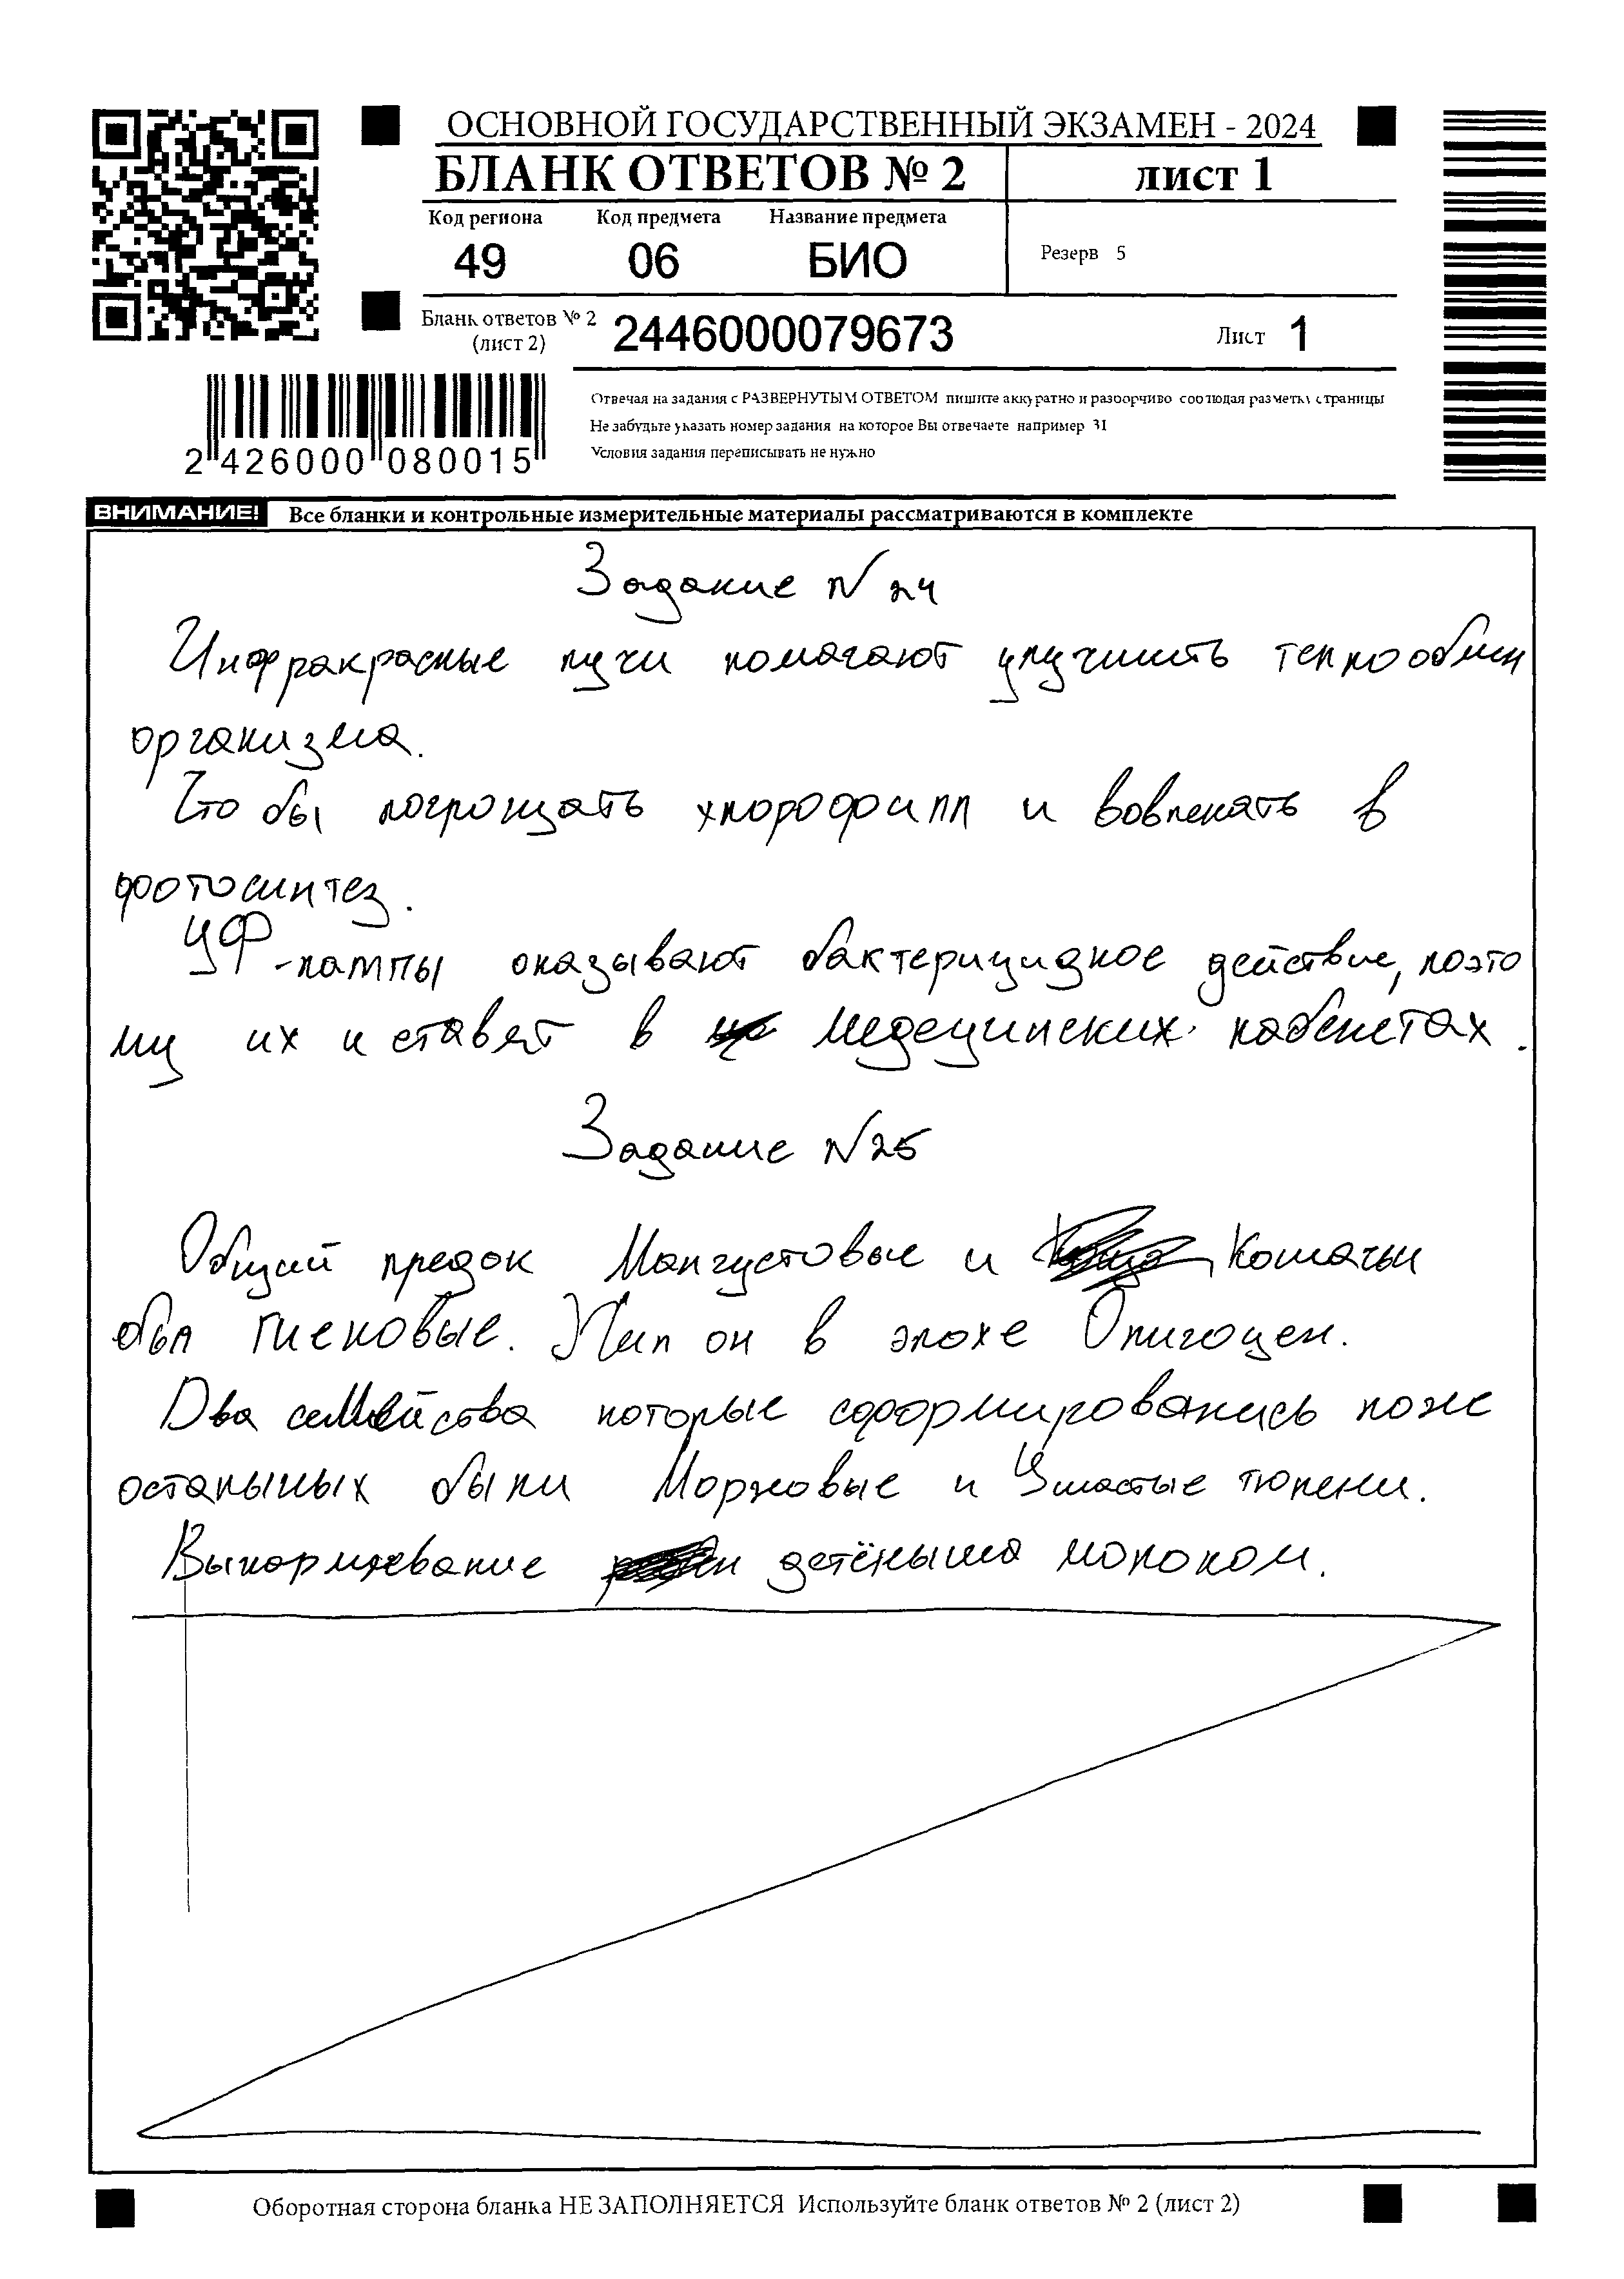 ОСНОВНОЙ ГОСУДАРСТВЕННЫЙ ЭКЗАМЕН - 2024
БЛАНК ОТВЕТОВ № 2
лист 1
Код региона Код предмета Название предмета
49 06 БИО
Резерв 5
Бланк ответов № 2
(лист 2)
2446000079673
Лист 1
Отвечая на задания с РАЗВЕРНУТЫМ ОТВЕТОМ пишите аккуратно и разборчиво соблюдая разметку страницы
Не забудьте указать номер задания на которое Вы отвечаете например 31
Условия задания переписывать не нужно
2 426000 080015
ВНИМАНИЕ! Все бланки и контрольные измерительные материалы рассматриваются в комплекте
Задание N 24
Инфракрасные лучи помагают улучшить теплообмен
организма.
Что бы поглощать хлорофилл и вовлекать в
фотосинтез.
УФ-лампы оказывают бактерицидное действие, поэто
му их и ставят в медецинских кабенетах.
Задание N25
Общий предок Мангустовые и Кошачьи
был Гиеновые. Жил он в эпохе Олигоцен.
Два семейства которые сформировались позже
остальных были Моржовые и Ушастые тюлени.
Выкармливание детёныша молоком.
Оборотная сторона бланка НЕ ЗАПОЛНЯЕТСЯ Используйте бланк ответов № 2 (лист 2)